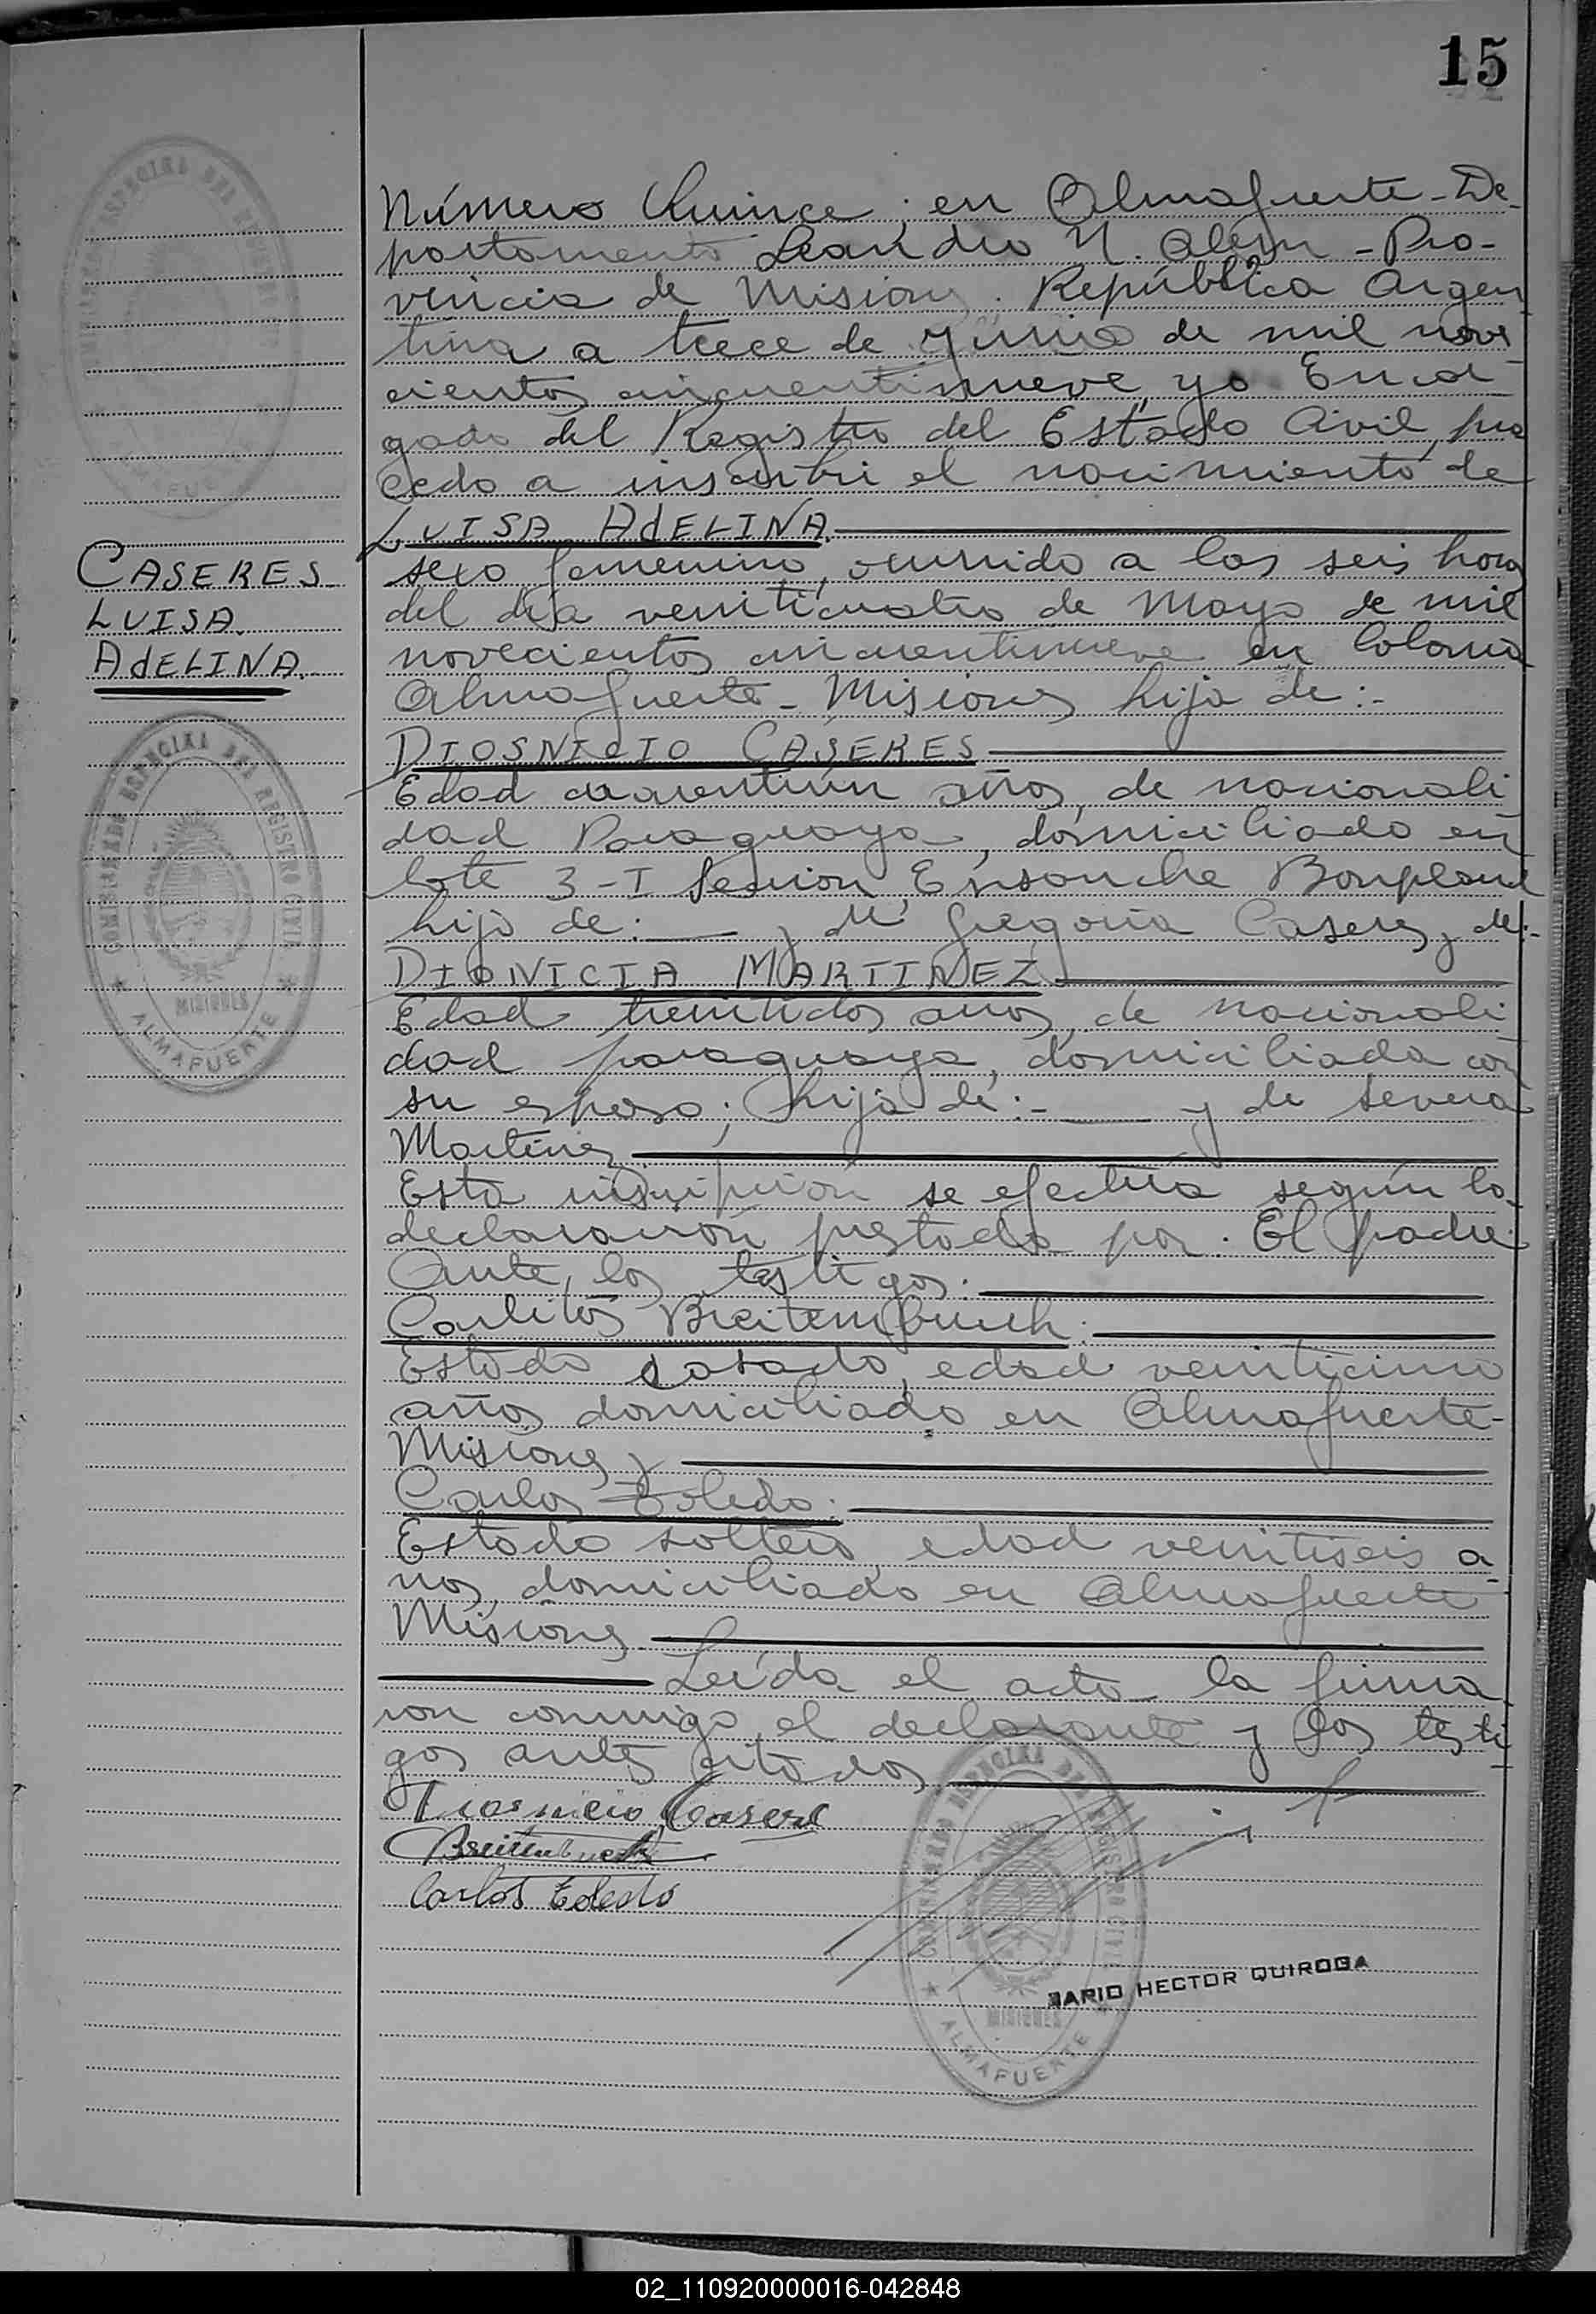 15
Número Quince: en Almafuerte - De-
partamento Leandro N. Alem - Pro-
vincia de Misiones. República Argen
tina a trece de Junio de mil nove
cientos cincuentinueve, yo Encar
gado del Registro del Estado Civil, pro
cedo a inscribir el nacimiento de
LUISA ADELINA
CASERES
LUISA
ADELINA.
sexo femenino, ocurrido a las seis horas
del día veinticuatro de Mayo de mil
novecientos cincuentinueve en Colonia
Almafuerte - Misiones hija de:-
DIOSNICIO CASERES
Edad años, de nacionali
dad Paraguaya, domiciliado en
lote 3-I Sección Ensanche Bonpland
hijo de: y Mª Gregoria Caseres y de:-
DIONICIA MARTINEZ
Edad treintidos años, de nacionali
dad paraguaya, domiciliada con
su esposo; hija de:- y de Severa
Martinez
Esta inscripción se efectúa según la
declaración prestada por. El padre.
Ante los testigos:
Carlitos Breitembruch:
Estado casado, edad veinticinco
años domiciliado en Almafuerte-
Misiones y
Carlos Toledo:
Estado soltero, edad veintiseis a-
ños, domiciliado en Almafuerte
Misiones
Leída el acta la firma
ron conmigo el declarante y los testi
gos antes citados
Diosnicio Casere
Carlos Toledo
COMISARIADO ESPECIAL DEL REGISTRO CIVIL
MISIONES
ALMAFUERTE
DARIO HECTOR QUIROGA
02_110920000016-042848